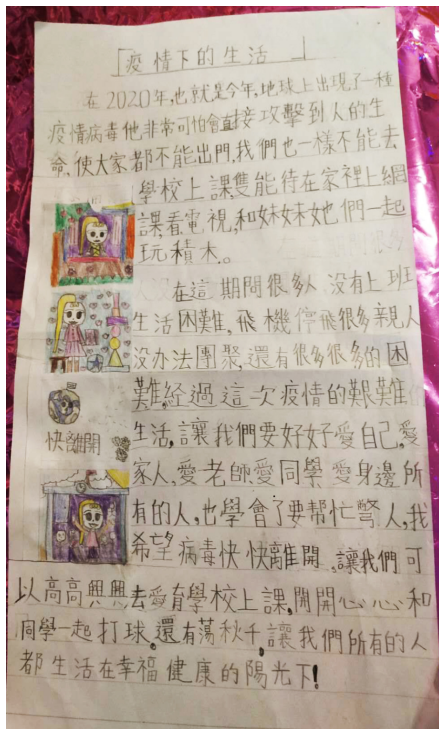 「疫情下的生活」
在2020年,也就是今年,地球上出現了一種
疫情病毒他非常可怕會直接攻擊到人的生
命,使大家都不能出門,我們也一樣不能去
學校上課,隻能待在家裡上網
課,看電視,和妹妹她們一起
玩積木。
在這期間很多人沒有上班
生活困難,飛機停飛很多親人
沒办法團聚,還有很多很多的困
難,經過這次疫情的艱難的
生活,讓我們要好好愛自己,愛
快離開
家人,愛老師,愛同學,愛身邊所
有的人,也學會了要帮忙警人,我
希望病毒快快離開,讓我們可
以高高興興去愛育學校上課,開開心心和
同學一起打球,還有蕩秋千,讓我們所有的人
都生活在幸福健康的陽光下!